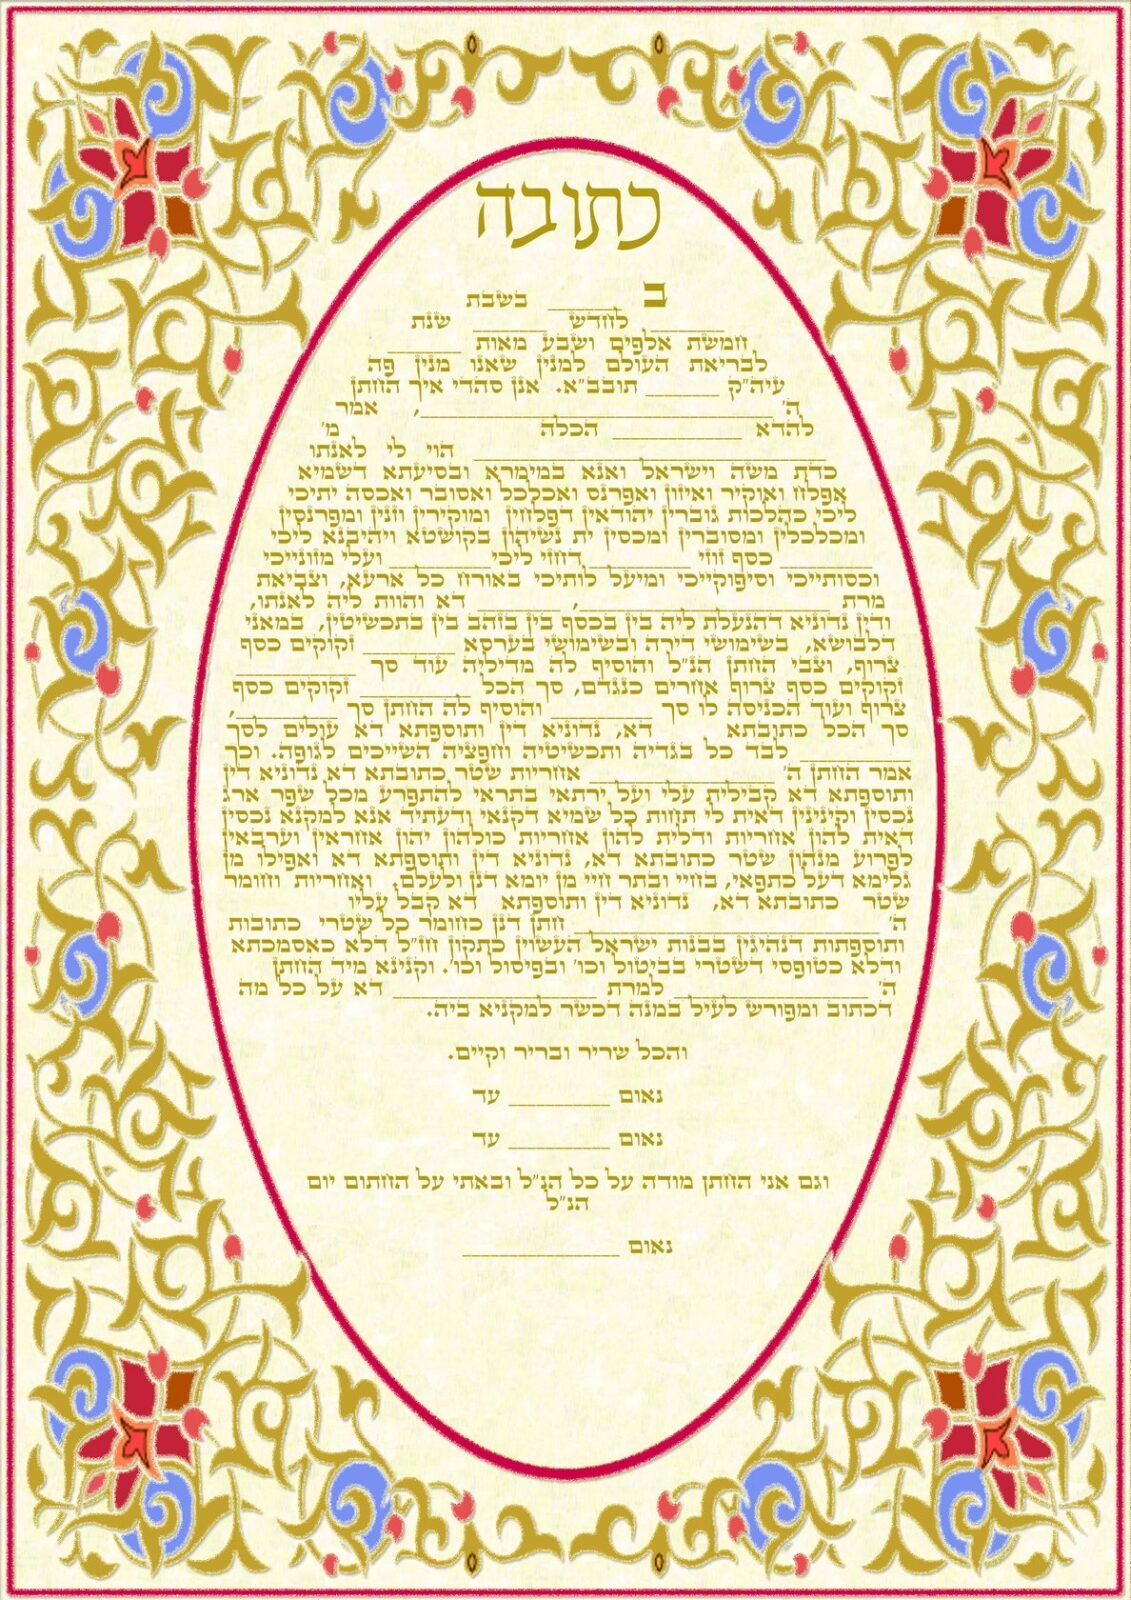 כתובה
ב _______ בשבת
_______ לחדש _______ שנת
חמשת אלפים ושבע מאות _______
לבריאת העולם למנין שאנו מנין פה
עיה״ק _______ תובב״א. אנן סהדי איך החתן
ה' _______________________________, אמר
להדא ____________ הכלה מ'
_______________________________ הוי לי לאנתו
כדת משה וישראל ואנא במימרא ובסיעתא דשמיא
אפלח ואוקיר ואיזון ואפרנס ואכלכל ואסובר ואכסה יתיכי
ליכי כהלכות גוברין יהודאין דפלחין ומוקירין וזנין ומפרנסין
ומכלכלין ומסוברין ומכסין ית נשיהון בקושטא ויהיבנא ליכי
_________ כסף זוזי _________ דחזי ליכי _________ ועלי מזונייכי
וכסותייכי וסיפוקייכי ומיעל לותיכי באורח כל ארעא, וצביאת
מרת ______________________, _______ דא והוות ליה לאנתו,
ודין נדוניא דהנעלת ליה בין בכסף בין בזהב בין בתכשיטין, במאני
דלבושא, בשימושי דירה ובשימושי בערסא _________ זקוקים כסף
צרוף, וצבי החתן הנ״ל והוסיף לה מדיליה עוד סך ___________
זקוקים כסף צרוף אחרים כנגדם, סך הכל __________ זקוקים כסף
צרוף ועוד הכניסה לו סך _________ והוסיף לה החתן סך _________,
סך הכל כתובתא דא, נדוניא דין ותוספתא דא עולים לסך
__________ לבד כל בגדיה ותכשיטיה וחפציה השייכים לגופה. וכך
אמר החתן ה' ________________ אחריות שטר כתובתא דא נדוניא דין
ותוספתא דא קבילית עלי ועל ירתאי בתראי להתפרע מכל שפר ארג
נכסין וקינינין דאית לי תחות כל שמיא דקנאי ודעתיד אנא למקנא נכסין
דאית להון אחריות ודלית להון אחריות כולהון יהון אחראין וערבאין
לפרוע מנהון שטר כתובתא דא, נדוניא דין ותוספתא דא ואפילו מן
גלימא דעל כתפאי, בחיי ובתר חיי מן יומא דנן ולעלם. ואחריות וחומר
שטר כתובתא דא, נדוניא דין ותוספתא דא קבל עליו
ה' ___________________________ חתן דנן כחומר כל שטרי כתובות
ותוספתות דנהיגין בבנות ישראל העשוין כתקון חז״ל דלא כאסמכתא
ודלא כטופסי דשטרי בביטול וכו' ובפיסול וכו'. וקנינא מיד החתן
ה' _________________ למרת _________________ דא על כל מה
דכתוב ומפורש לעיל במנה דכשר למקניא ביה.
והכל שריר ובריר וקיים.
נאום _________ עד
נאום _________ עד
וגם אני החתן מודה על כל הנ״ל ובאתי על החתום יום
הנ״ל
נאום ______________